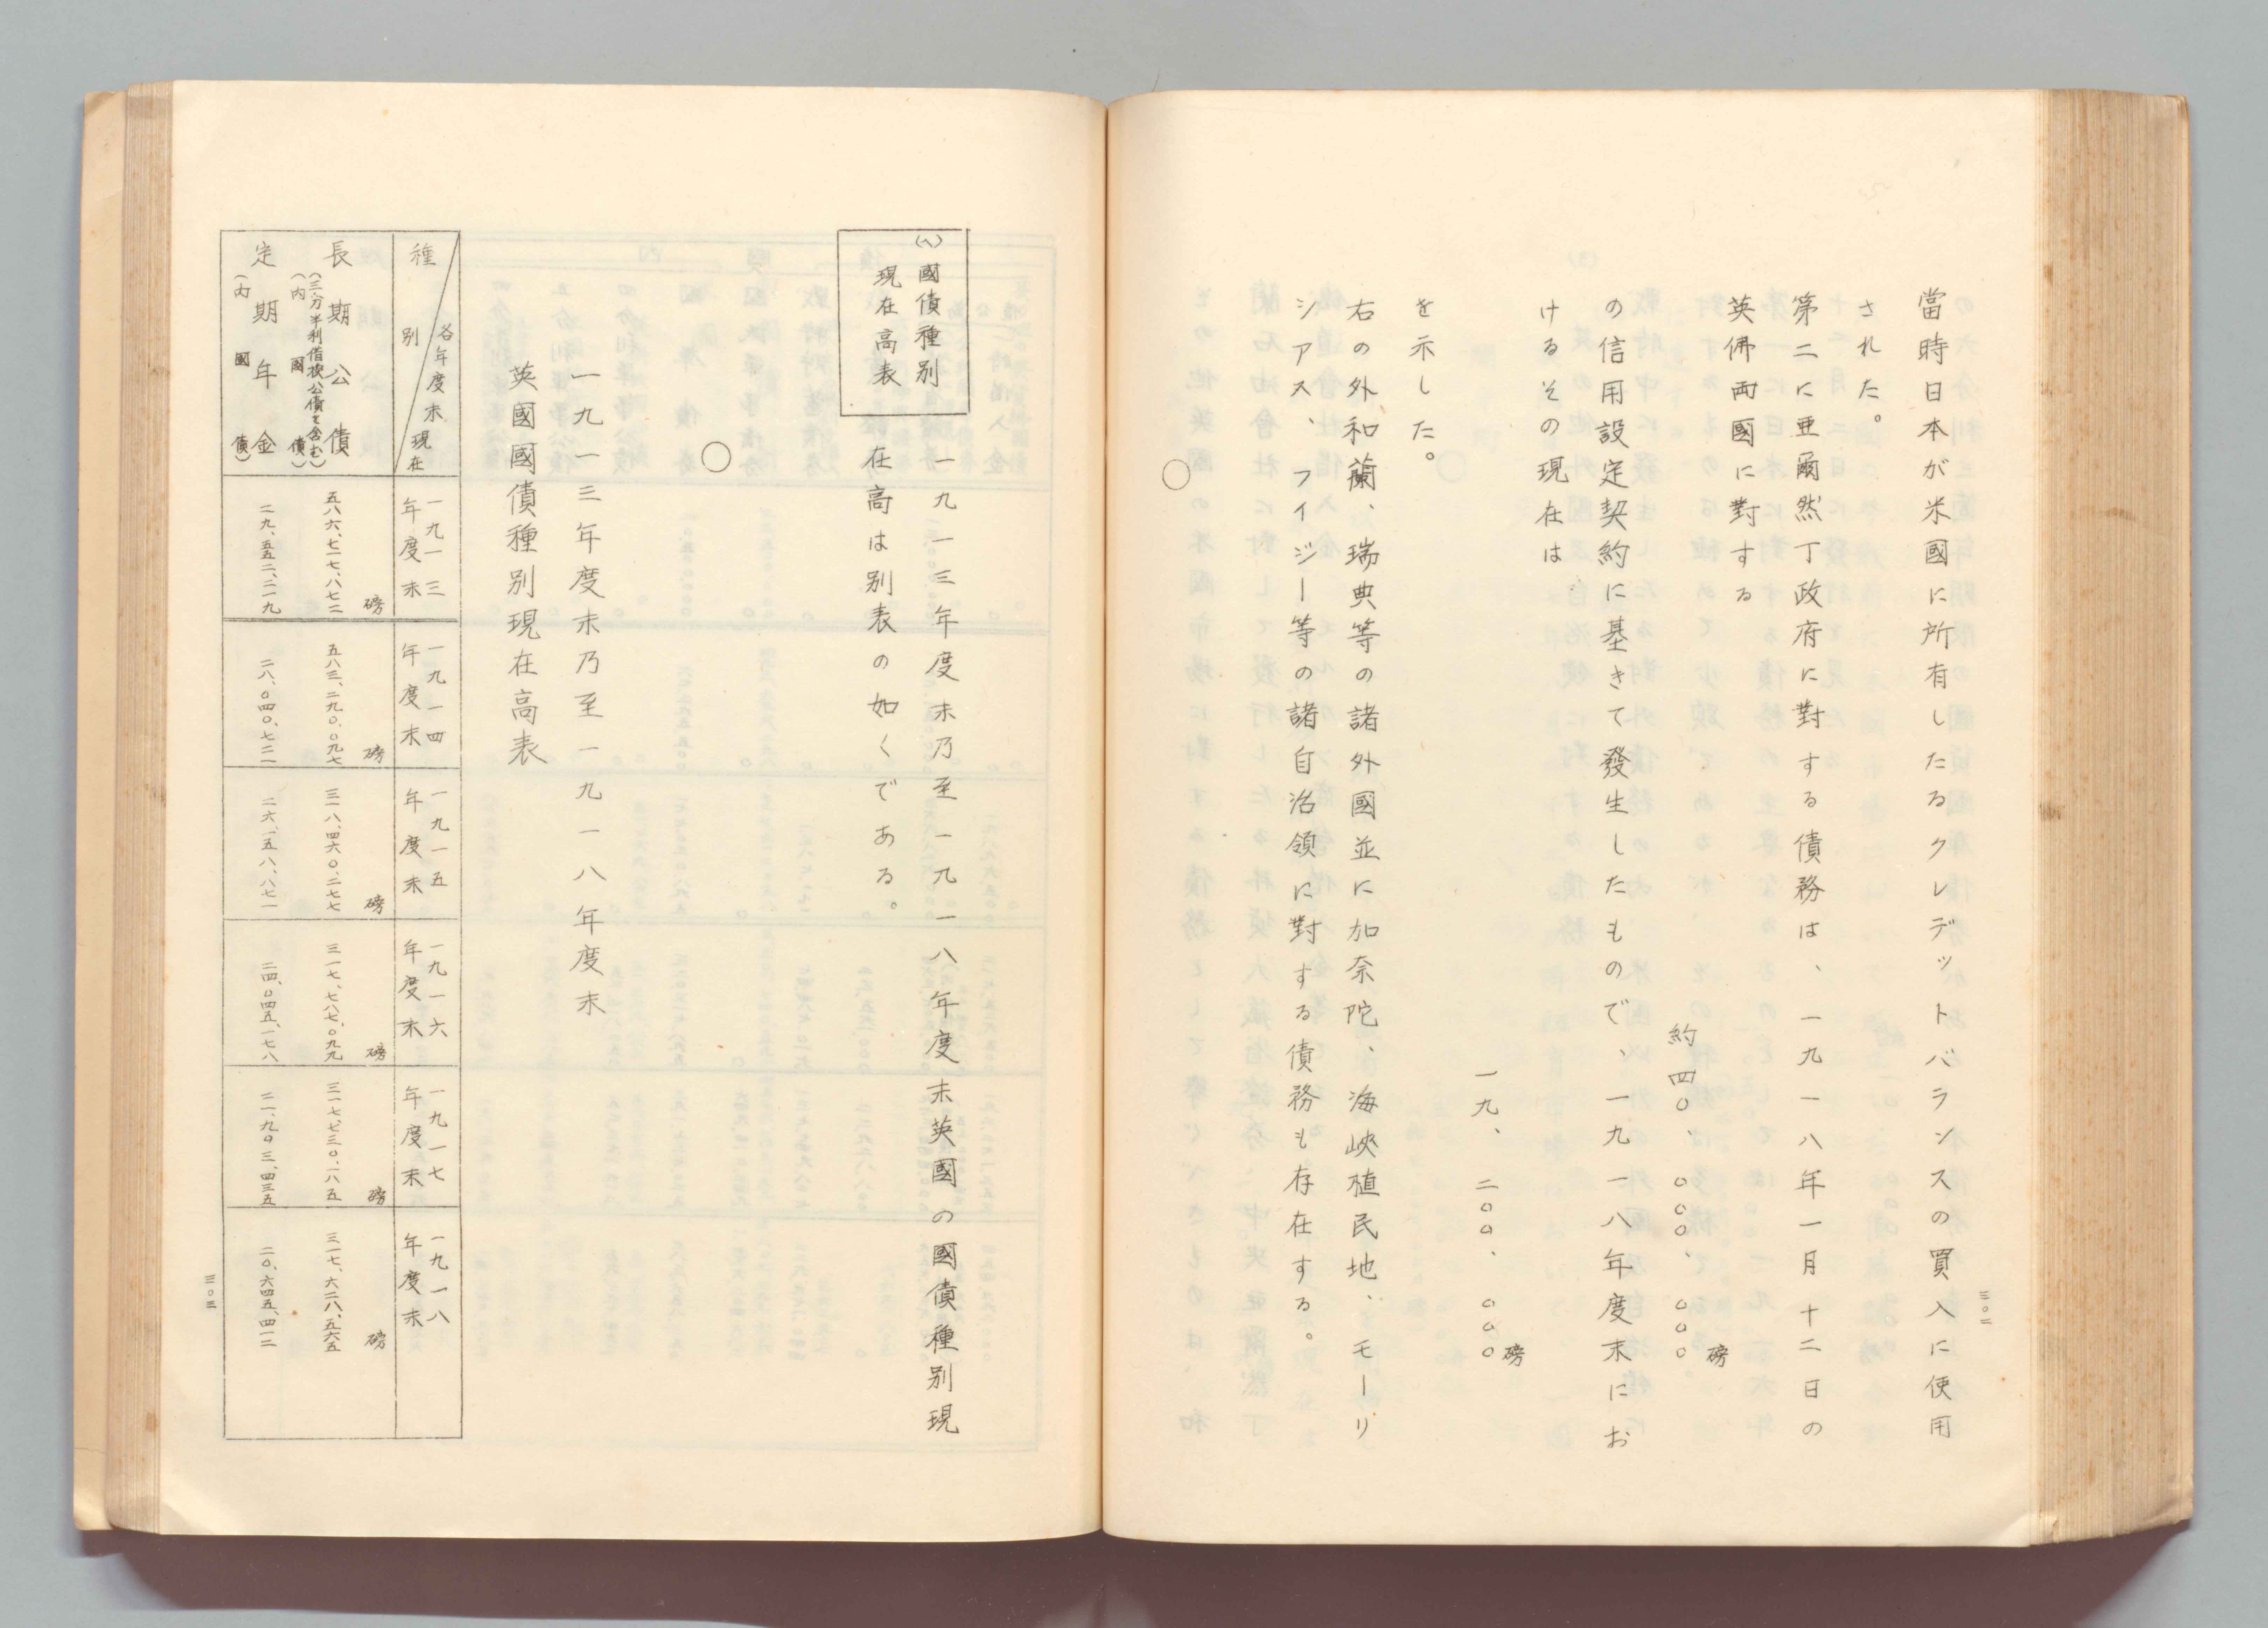 當時日本が米國に所有したるクレデットバランスの買入に使用
された。
第二に亜爾然丁政府に對する債務は、一九一八年一月十二日の
英佛両國に對する
約四〇、〇〇〇、〇〇〇磅
の信用設定契約に基きて發生したもので、一九一八年度末にお
けるその現在は
一九、二〇〇、〇〇〇磅
を示した。
右の外和蘭、瑞典等の諸外國並に加奈陀、海峽植民地、モーリ
シアス、フイジー等の諸自治領に對する債務も存在する。
三〇二
(ヘ)國債種別
現在高表
一九一三年度末乃至一九一八年度末英國の國債種別現
在高は別表の如くである。
一九一三年度末乃至一九一八年度末
英國國債種別現在高表
各年度末現在
種別
一九一三年度末
一九一四年度末
一九一五年度末
一九一六年度末
一九一七年度末
一九一八年度末
磅 磅 磅 磅 磅 磅
長期公債
(三分半利借換公債を含む)
(内國債)
五八六、七一七、八七二
五八三、二九〇、〇九七
三一八、四六〇、二七七
三一七、七八七、〇九九
三一七、七三〇、一八五
三一七、六二八、五六五
定期年金
(内國債)
二九、五五二、二一九
二八、〇四〇、七二一
二六、一五八、八七一
二四、〇四五、一七八
二一、九〇三、四三五
二〇、六四五、四一二
三〇三